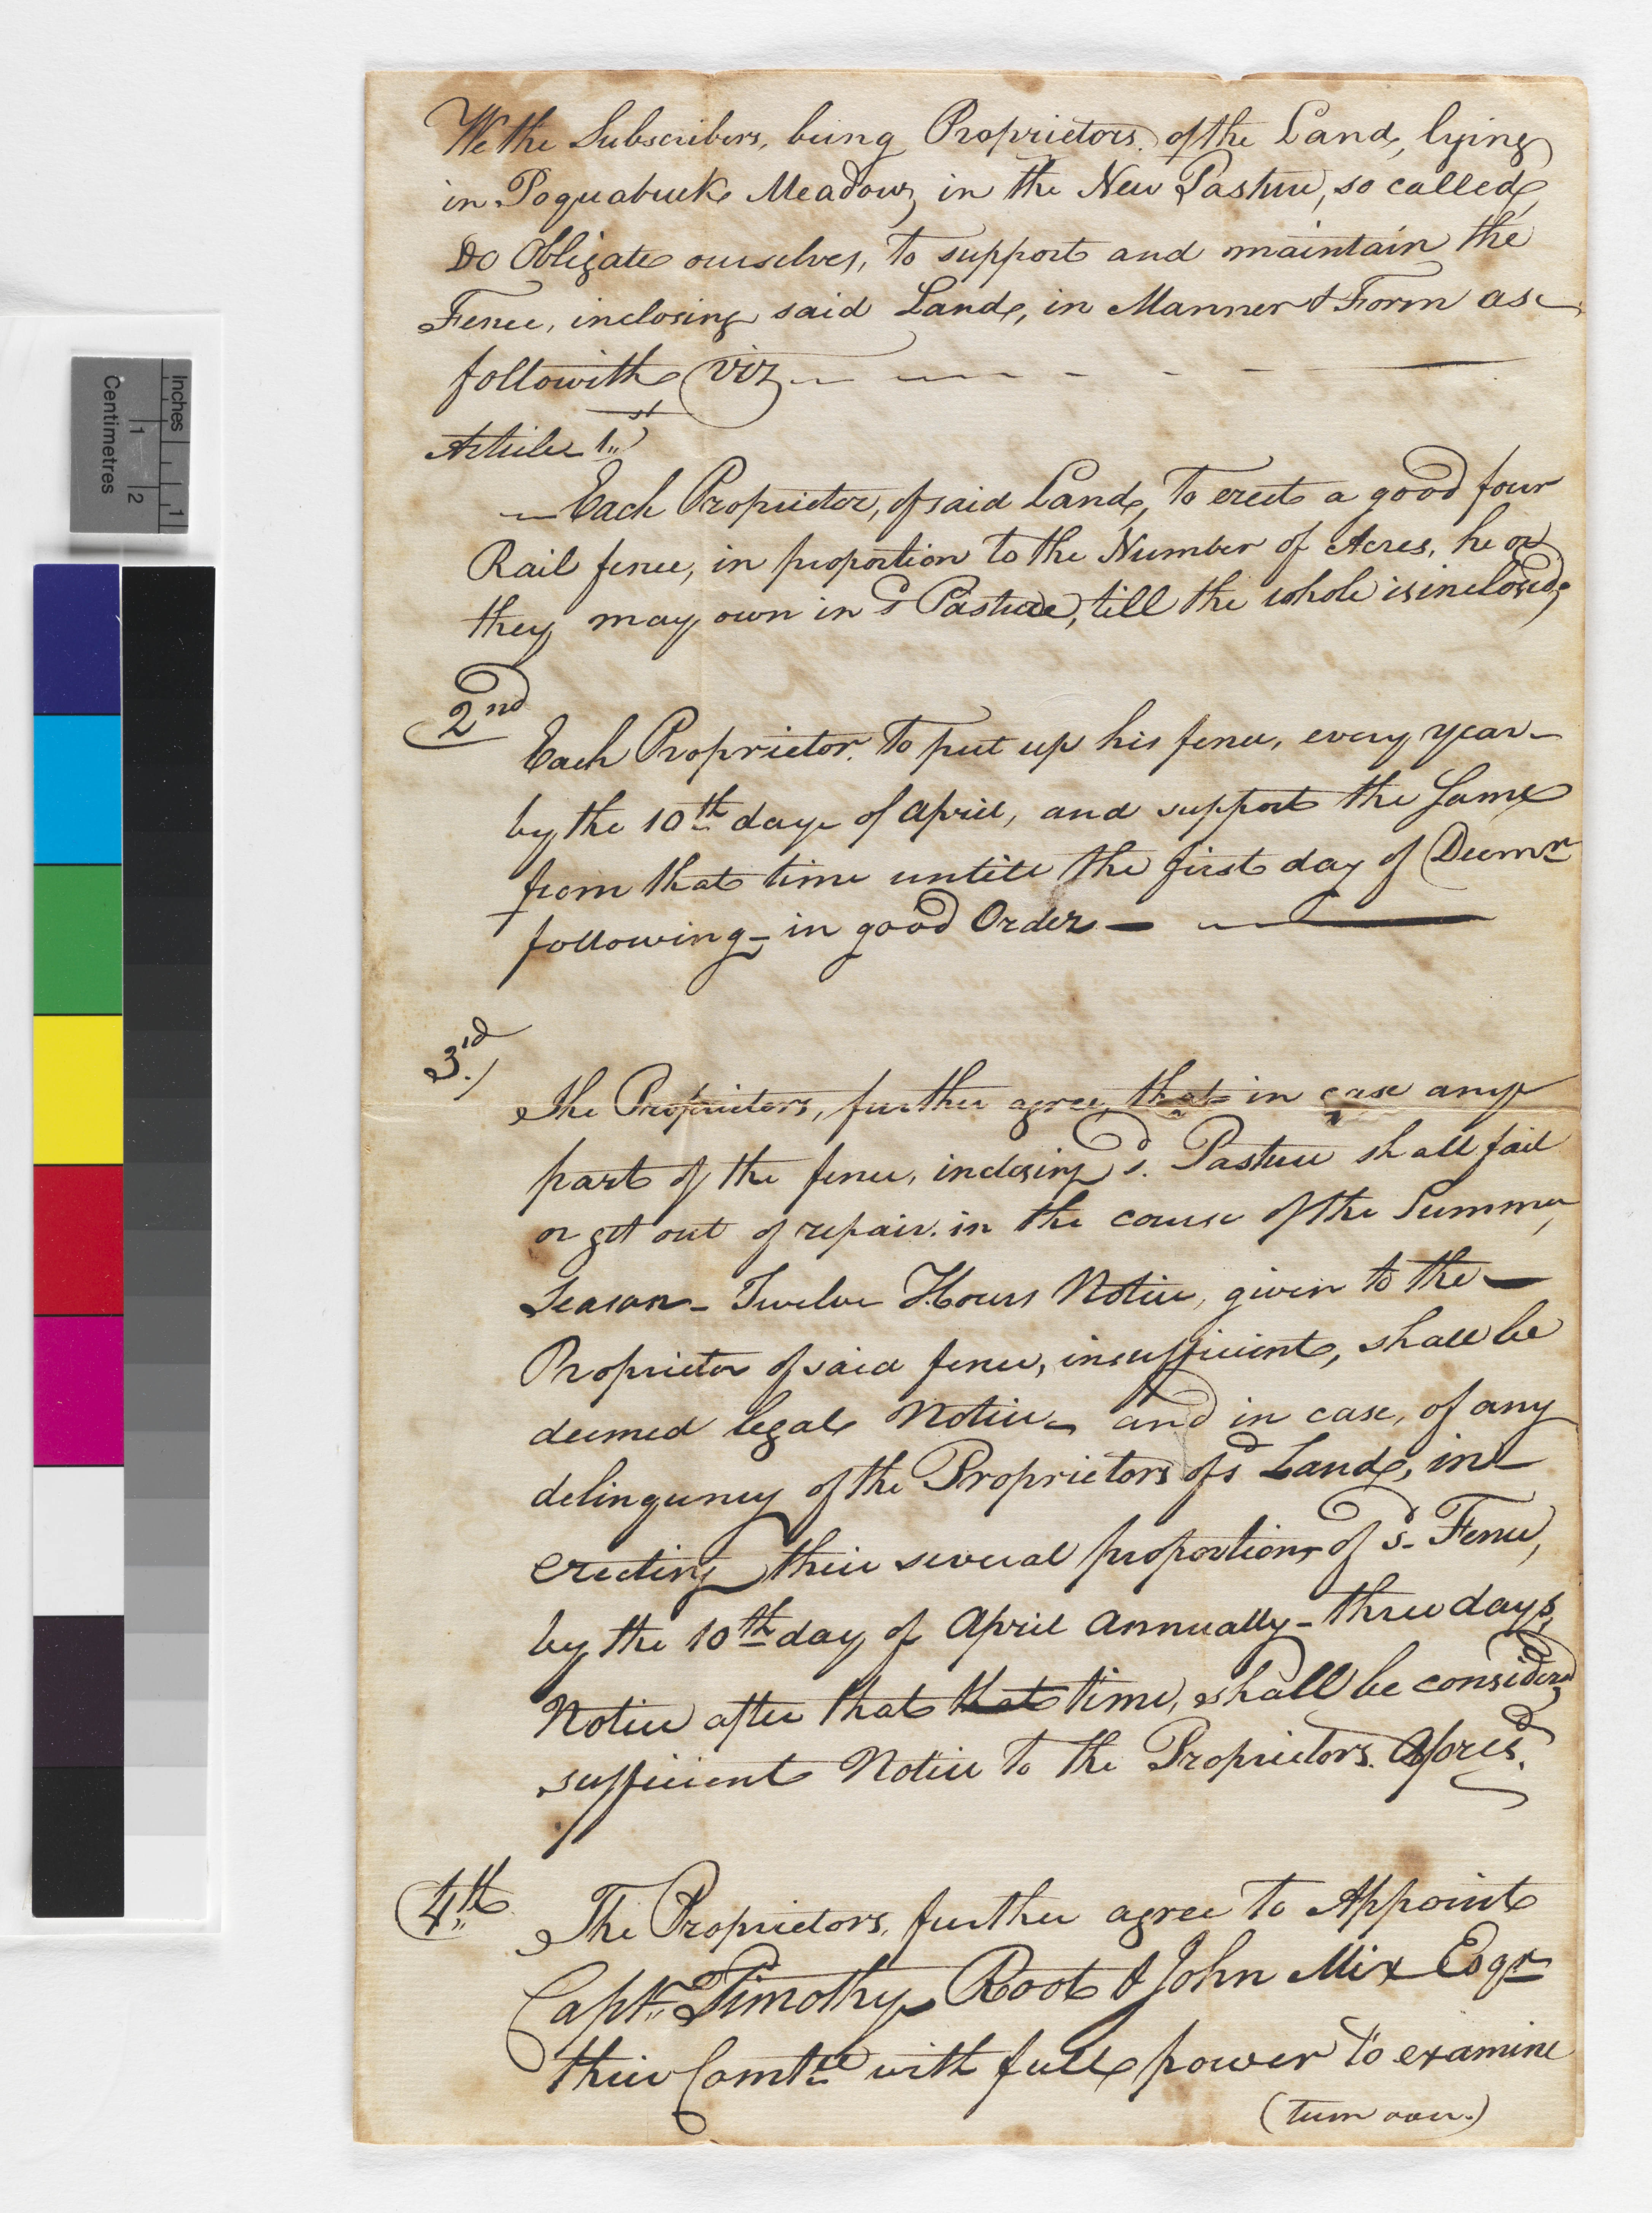 We the Subscribers, being Proprietors of the Land, lying
in Poquabuck Meadow, in the New Pasture, so called,
Do Obligate ourselves, to support and maintain the
Fence, inclosing said Land, in Manner & Form as
followith (viz
Article 1st
Each Proprietor, of said Land, to erect a good four
Rail fence, in proportion to the Number of Acres, he or
they may own in sd Pasture, till the whole is inclosed,
2nd
Each Proprietor. to put up his fence, every year
by the 10th day of April, and support the Same
from that time untill the first day of Decemr
following - in good Order -
3rd
The Proprietors, further agree, that in case any
part of the fence, inclosing sd. Pasture shall fail
or get out of repair. in the course of the Summer,
Season - Twelve Hours Notice, given to the -
Proprietor of said fence, insufficient, shall be
deemed legal Notice - and in case, of any
delinquency of the Proprietors of sd Land, in
erecting their several proportions of sd. Fence,
by the 10th day of April Annually - three days,
Notice after that that time, shall be considerd
sufficient Notice to the Proprietors. Aforesd.
4th
The Proprietors, further agree to Appoint
Captn. Timothy Root & John Mix Esqr
their Comtee with full power to examine
(turn over.)
Inches
1
Centimetres
1
2